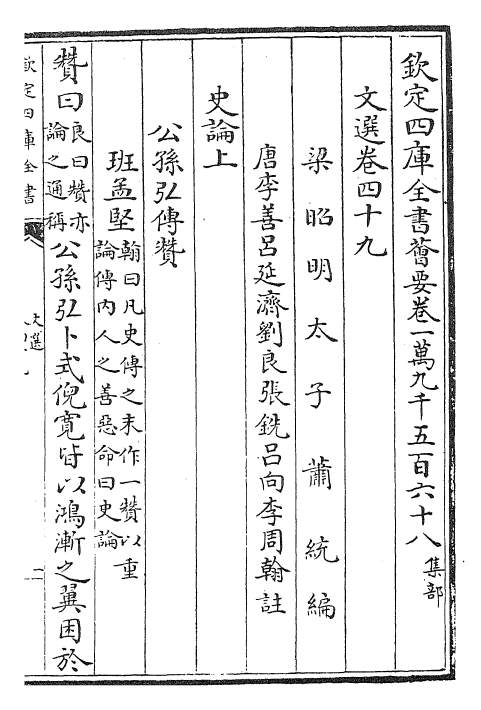 欽定四庫全書薈要卷一萬九千五百六十八 集部
文選卷四十九
梁昭明太子 蕭統編
唐李善呂延濟劉良張銑呂向李周翰註
史論上
公孫弘傳贊
班孟堅 翰曰凡史傳之末作一贊以重
論傳內人之善惡命曰史論
贊曰 良曰贊亦
論之通稱 公孫弘卜式倪寬皆以鴻漸之翼困於
欽定四庫全書
文選